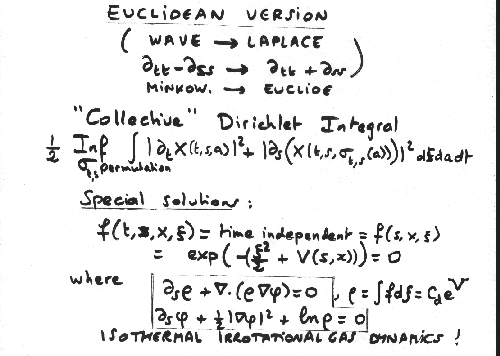 EUCLIDEAN VERSION
( WAVE → LAPLACE
∂tt - ∂ss → ∂tt + ∂ss )
MINKOW. → EUCLIDE
"Collective" Dirichlet Integral
1/2 Inf ∫ |∂t X(t,s,a)|² + |∂s(X(t,s,σt,s(a)))|² dsdadt
σt,s permutation
Special solutions:
f(t,s,x,ξ) = time independent = f(s,x,ξ)
= exp(-(ξ²/2 + V(s,x))) = 0
where ∂sρ + ∇.(ρ∇φ) = 0 , ρ = ∫fdξ = Cd e^V
∂sφ + 1/2|∇φ|² + lnρ = 0
ISOTHERMAL IRROTATIONAL GAS DYNAMICS !